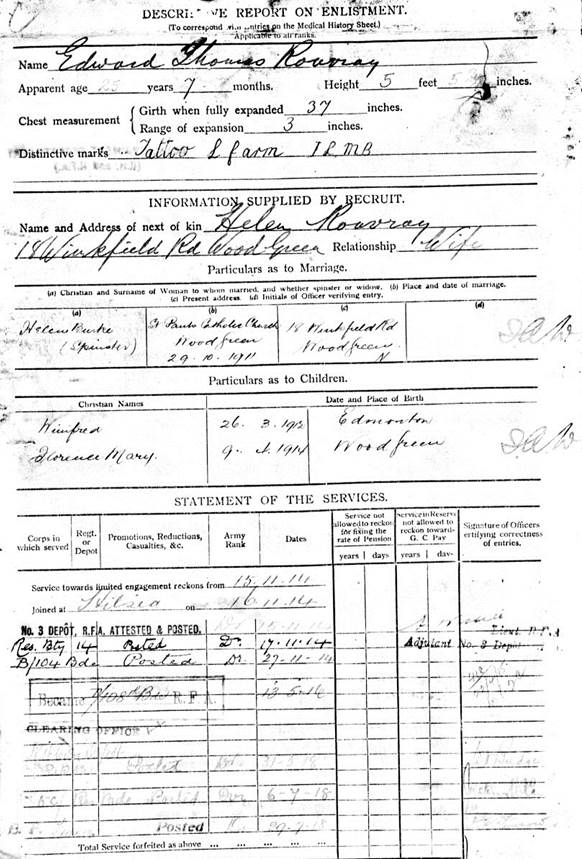 DESCRIPTIVE REPORT ON ENLISTMENT.
(To correspond with entries on the Medical History Sheet.)
Applicable to all ranks.
Name Edward Thomas Rouvray
Apparent age years 7 months. Height 5 feet inches.
Chest measurement { Girth when fully expanded 37 inches.
Range of expansion 3 inches.
Distinctive marks Tattoo L farm I L M B
INFORMATION SUPPLIED BY RECRUIT.
Name and Address of next of kin Helen Rouvray
18 Winkfield Rd Wood Green Relationship Wife
Particulars as to Marriage.
(a) Christian and Surname of Woman to whom married, and whether spinster or widow. (b) Place and date of marriage.
(c) Present address. (d) Initials of Officer verifying entry.
(a) (b) (c) (d)
Helen Burke St Pauls Catholic Church 18 Winkfield Rd
(Spinster) Woodgreen Woodgreen
29.10.1911 N
Particulars as to Children.
Christian Names Date and Place of Birth
Winifred 26. 3. 1912 Edmonton
Florence Mary. 9. 1914 Woodgreen
STATEMENT OF THE SERVICES.
Corps in which served Regt. or Depot Promotions, Reductions, Casualties, &c. Army Rank Dates Service not allowed to reckon for fixing the rate of Pension Service in Reserve not allowed to reckon towards G. C. Pay Signature of Officers certifying correctness of entries.
years days years days
Service towards limited engagement reckons from 15.11.14
Joined at Hilsea on 16.11.14
No. 3 DEPÔT, R.F.A. ATTESTED & POSTED. Dr 15.11.14 Lieut. R.F.A
Res. Bty 14 Posted Dr. 17.11.14 Adjutant No. 3 Depôt
B/104 Bde Posted Dr. 27-11-14
Became R.F.A. 13-5-16
CLEARING OFFICE
Posted 31-5-18
Bde Posted Dvr 6-7-18
Posted 29-7-18
Total Service forfeited as above ... ... ... ...